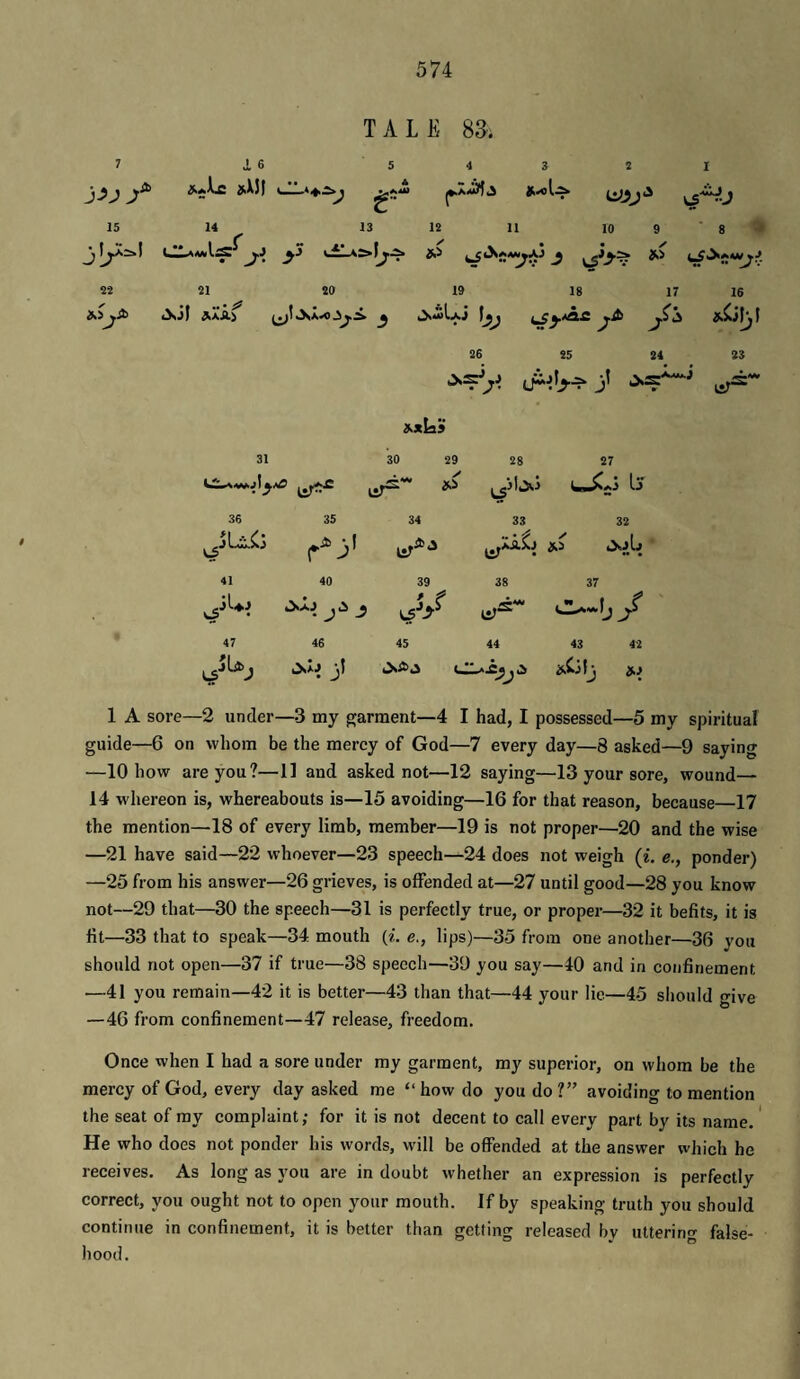 574
TALE 83.
7 1 6 5 4 3 2 1
ريشي درون جامه داشتم شيخ رحمت الله عليه هر روز
15 14 13 12 11 10 9 8
پرسيدي که چوني و نپرسيدي که جراحت تو بر کجاست احتراز
22 21 20 19 18 17 16
ازانکه ذکر هر عضوي روا نباشد و خردمندان گفته اند هرکه
26 25 24 23
سخن نسنجد از جوابش برنجد
قطعه
31 30 29 28 27
تا نيک نداني که سخن عين صوابست
36 35 34 33 32
بايد که بگفتن دهن از هم نگشائي
41 40 39 38 37
گر راست سخن گوئي و در بند بماني
47 46 45 44 43 42
به زانکه دروغت دهد از بند رهائي
1 A sore—2 under—3 my garment—4 I had, I possessed—5 my spiritual
guide—6 on whom be the mercy of God—7 every day—8 asked—9 saying
—10 how are you?—11 and asked not—12 saying—13 your sore, wound—
14 whereon is, whereabouts is—15 avoiding—16 for that reason, because—17
the mention—18 of every limb, member—19 is not proper—20 and the wise
—21 have said—22 whoever—23 speech—24 does not weigh (i. e., ponder)
—25 from his answer—26 grieves, is offended at—27 until good—28 you know
not—29 that—30 the speech—31 is perfectly true, or proper—32 it befits, it is
fit—33 that to speak—34 mouth (i. e., lips)—35 from one another—36 you
should not open—37 if true—38 speech—39 you say—40 and in confinement
—41 you remain—42 it is better—43 than that—44 your lie—45 should give
—46 from confinement—47 release, freedom.
Once when I had a sore under my garment, my superior, on whom be the
mercy of God, every day asked me “ how do you do ?” avoiding to mention
the seat of my complaint; for it is not decent to call every part by its name.
He who does not ponder his words, will be offended at the answer which he
receives. As long as you are in doubt whether an expression is perfectly
correct, you ought not to open your mouth. If by speaking truth you should
continue in confinement, it is better than getting released by uttering false-
hood.